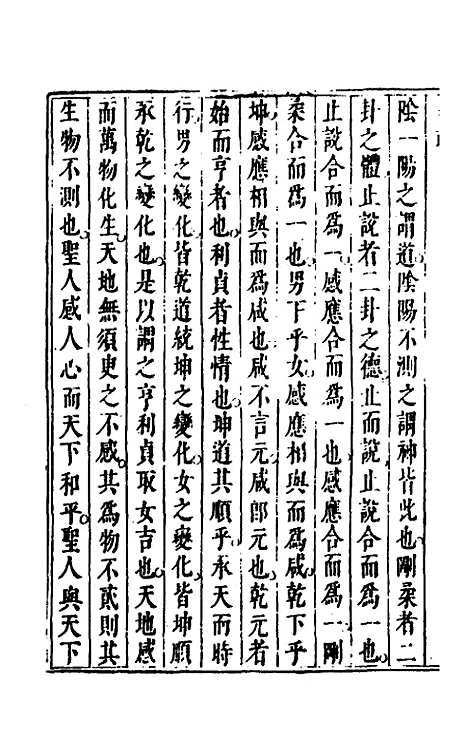 陰一陽之謂道陰陽不測之謂神皆此也剛柔者二
卦之體止說者二卦之德止而說止說合而爲一也
止說合而爲一感應合而爲一也感應合而爲一剛
柔合而爲一也男下乎女感應相與而爲咸乾下乎
坤感應相與而爲咸也咸不言元咸郎元也乾元者
始而亨者也利貞者性情也坤道其順乎承天而時
行男之變化皆乾道統坤之變化女之變化皆坤順
承乾之變化也是以謂之亨利貞取女吉也天地感
而萬物化生天地無須叟之不感其爲物不貳則其
生物不測也聖人感人心而天下和平聖人與天下